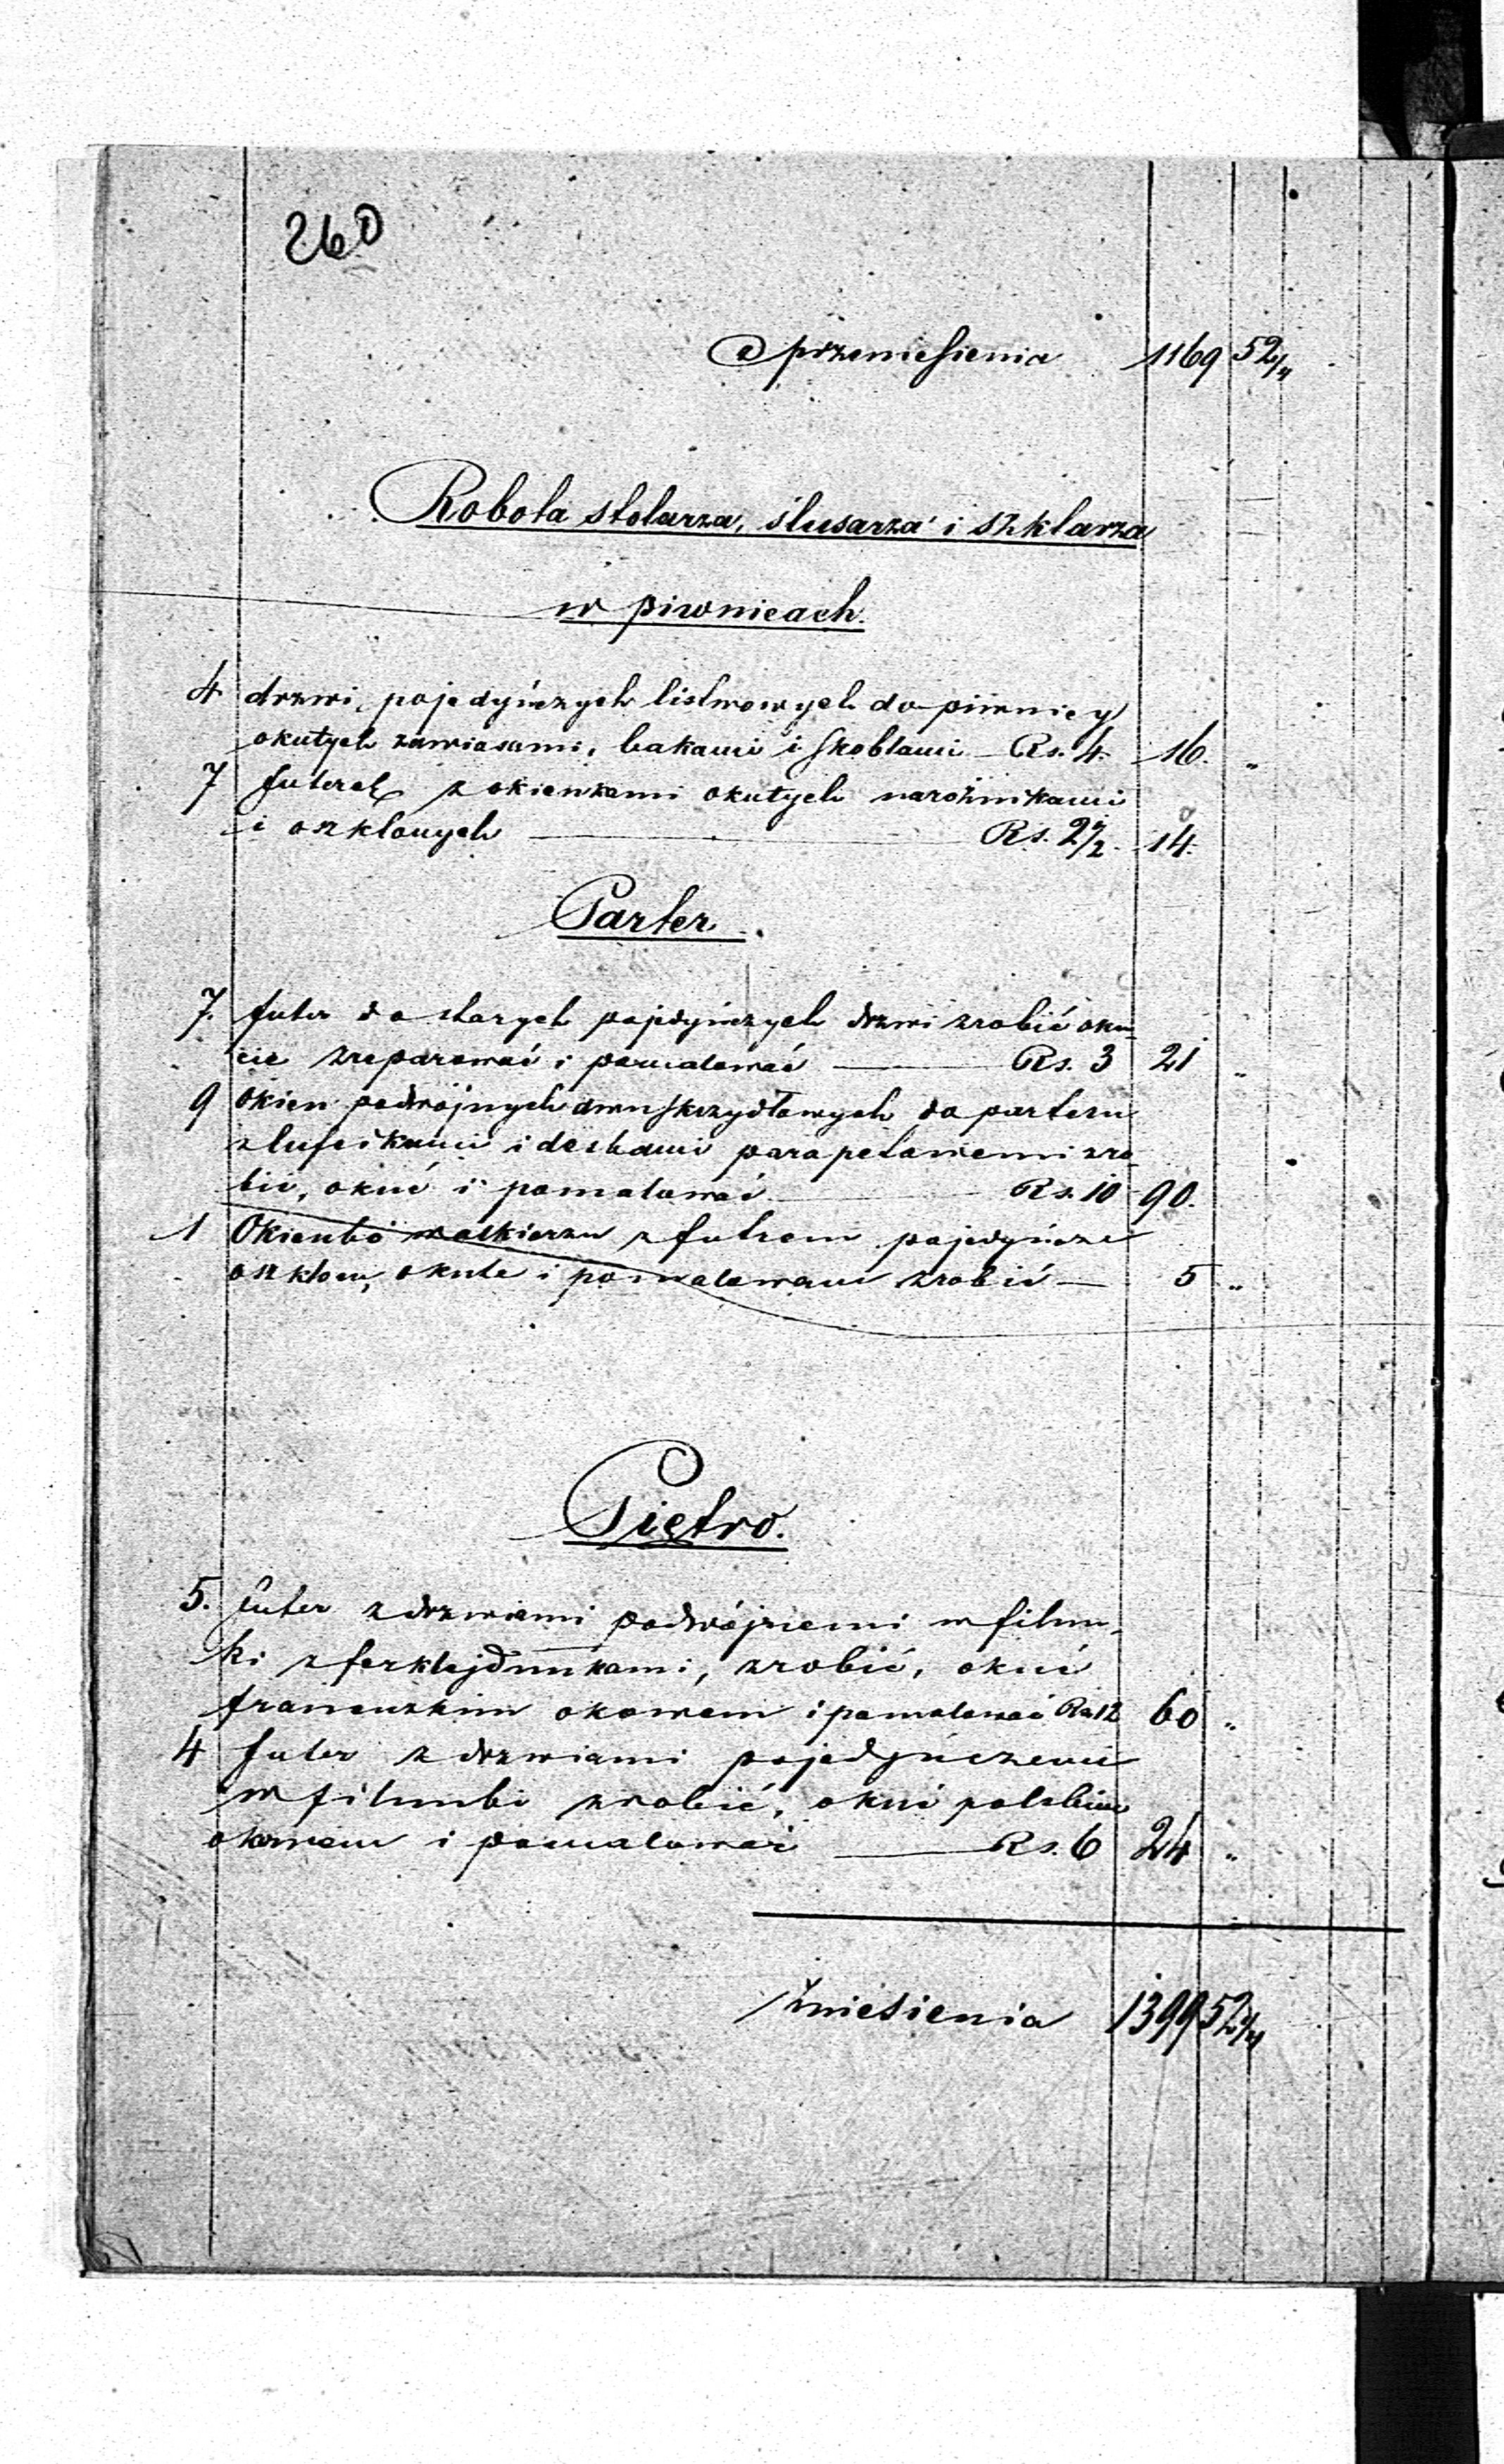 260
z przeniesienia 1169 52 1/4
Robota stolarza, ślusarza i szklarza
w piwnicach.
4 drzwi pojedyńczych listwowych do piwnicy
okutych zawiasami, hakami i skoblami Rs. 4. 16. "
7 futerek z okienkami okutych narożnikami
i oszklonych Rs. 2 14.
Parter.
7. futer do starych pojedyńczych drzwi zrobić oku
cie zreparować i pomalować Rs. 3 21 "
9 Okien podwójnych dwuskrzydłowych do parteru
z lufcikami i deskami parapetowemi zro
bić, okuć i pomalować Rs. 10 90.
1 Okienko w alkierzu z futrem pojedyńcze
oszklone, okute i pomalowane zrobić 5 "
Piętro.
5. futer z drzwiami podwójnemi w filun-
ki z ferklejdunkami, zrobić, okuć
francuzkim okowem i pomalować Rs 12 60 "
4 futer z drzwiami pojedyńczemi
w filunki zrobić, okuć polskim
okowem i pomalować Rs. 6 24 "
Zniesienia 1399 52 1/4